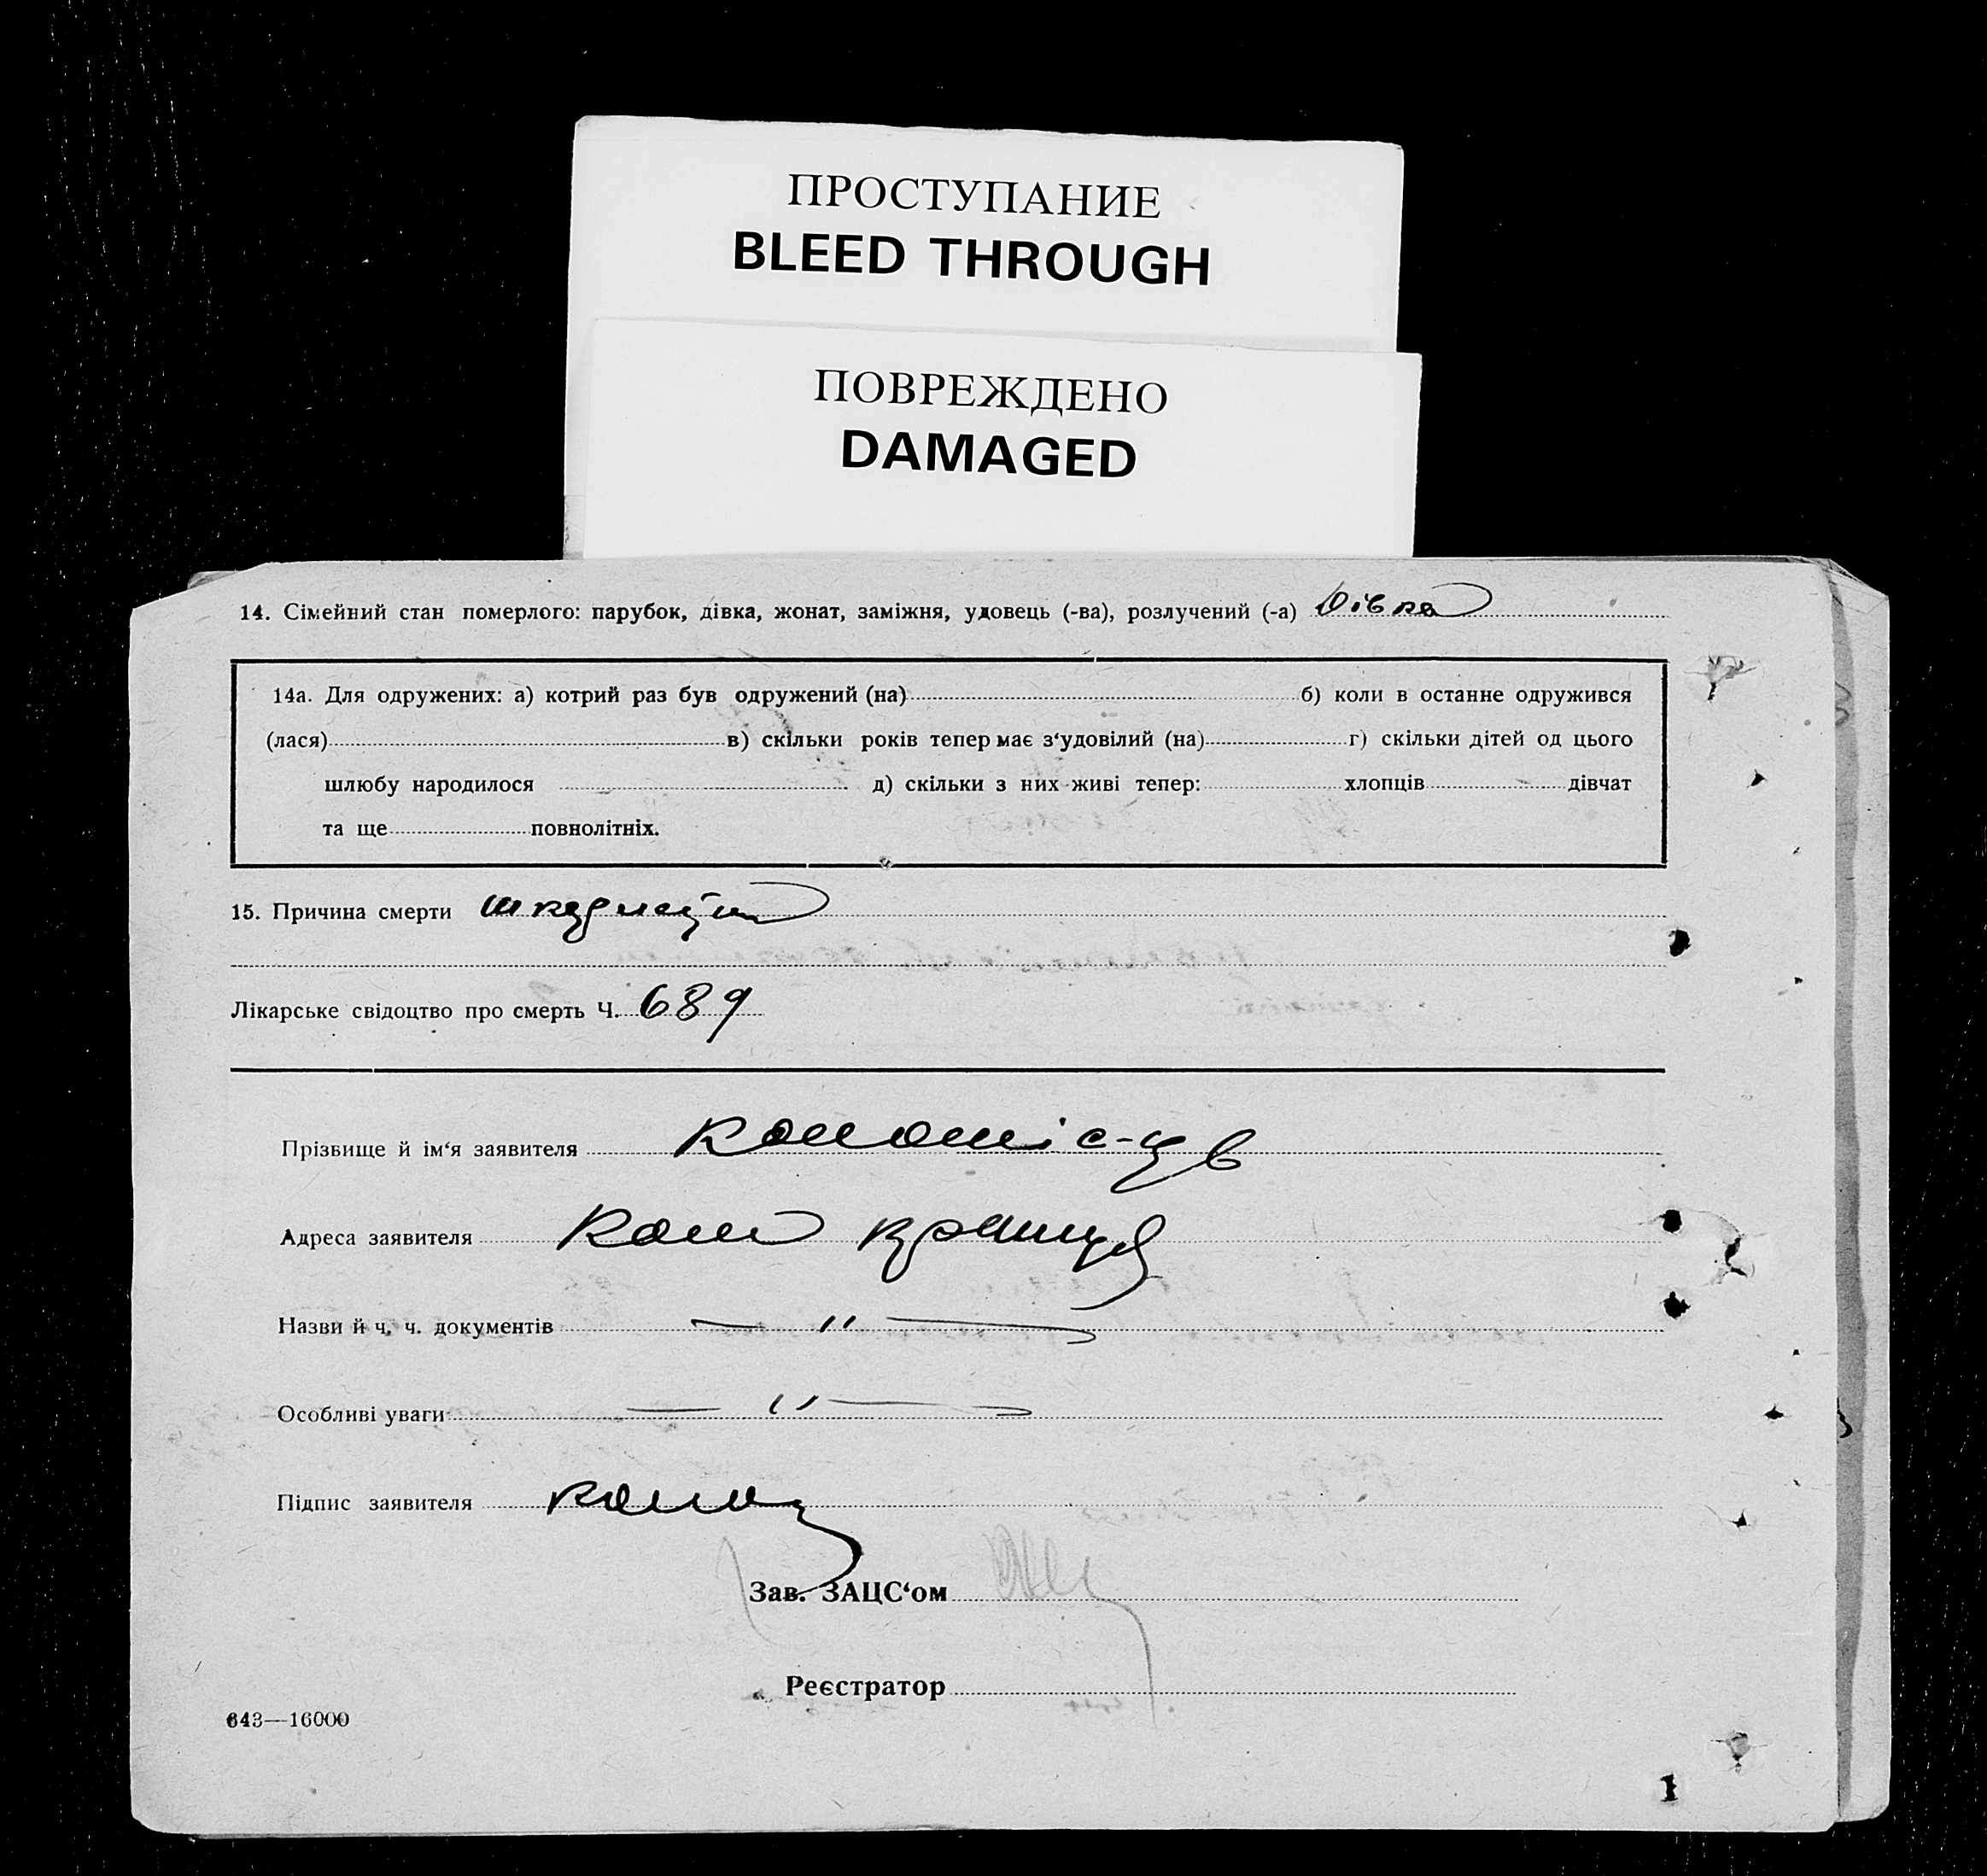 ПРОСТУПАНИЕ
BLEED THROUGH
ПОВРЕЖДЕНО
DAMAGED
14. Сімейний стан померлого: парубок, дівка, жонат, заміжня, удовець (-ва), розлучений (-а) Дівка
14а. Для одружених: а) котрий раз був одружений (на) б) коли в останнє одружився
(лася) в) скільки років тепер має з‘удовілий (на) г) скільки дітей од цього
шлюбу народилося д) скільки з них живі тепер: хлопців дівчат
та ще повнолітніх.
15. Причина смерти
Лікарське свідоцтво про смерть Ч. 689
Прізвище й ім‘я заявителя
Адреса заявителя
Назви й ч. ч. документів — " —
Особливі уваги — " —
Підпис заявителя
Зав. ЗАЦС‘ом
Реєстратор
643—16000